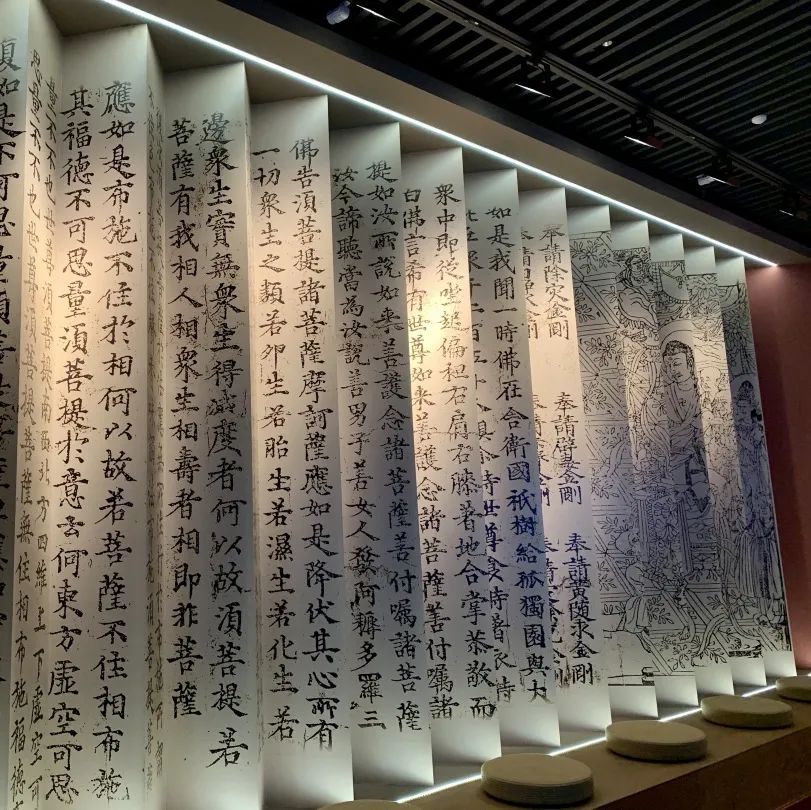 奉請除灾金剛 奉請辟毒金剛 奉請黃隨求金剛
如是我聞一時佛在舍衛國祇樹給孤獨園與大
衆中即從坐起偏袒右肩右膝著地合掌恭敬而
白佛言希有世尊如來善護念諸菩薩善付囑諸
提如汝所説如來善護念諸菩薩善付囑諸菩薩
汝今諦聽當為汝説善男子若女人發阿耨多羅三
佛告須菩提諸菩薩摩訶薩應如是降伏其心所有
一切衆生之類若卵生若胎生若濕生若化生若
邊衆生實無衆生得滅度者何以故須菩提若
菩薩有我相人相衆生相壽者相即非菩薩
應如是布施不住於相何以故若菩薩不住相布施
其福德不可思量須菩提於意云何東方虛空可思
量不不也世尊須菩提南西北方四維上下虛空可
思量不不也世尊須菩提菩薩無住相布施福德
如是不可思量須菩